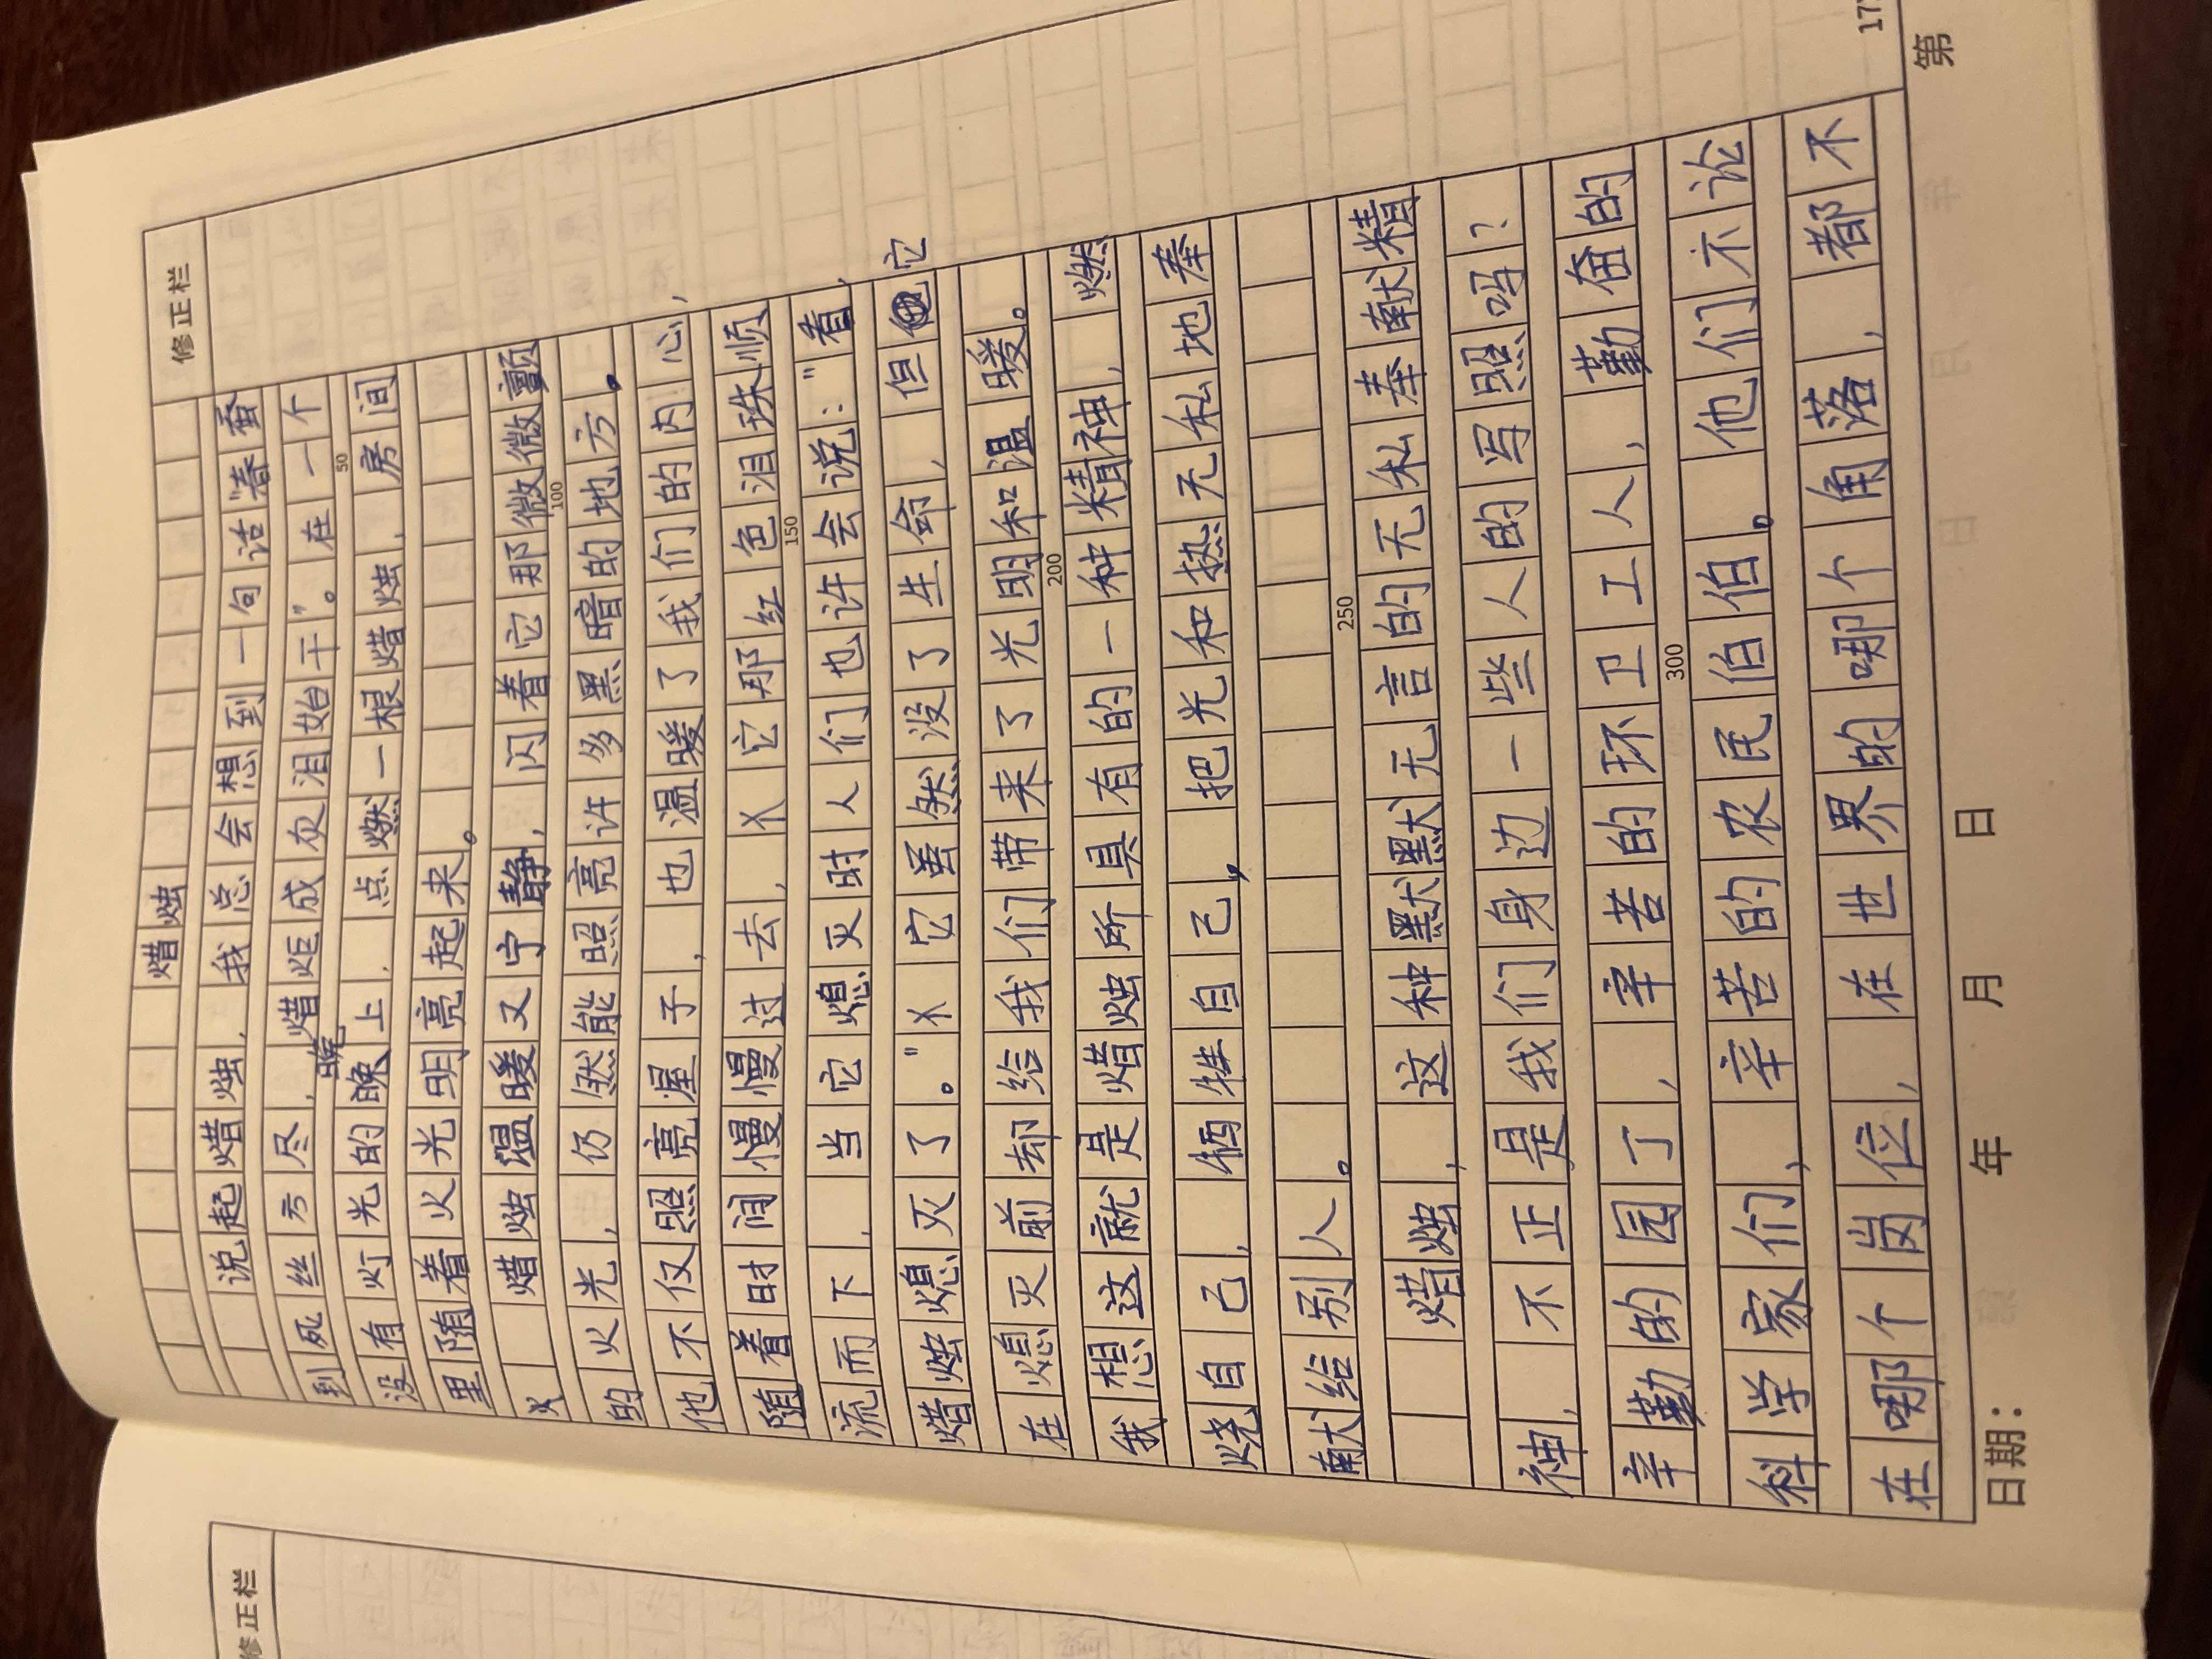 修正栏
蜡烛
说起蜡烛，我总会想到一句话“春蚕
到死丝方尽，蜡炬成灰泪始干”。在一个
晚
没有灯光的晚上，点燃一根蜡烛，房间
里随着火光明亮起来。
50
蜡烛温暖又宁静，闪着它那微微颤
100
的火光，仍然能照亮许多黑暗的地方。
他不仅照亮屋子，也温暖了我们的内心，
随着时间慢慢过去，它那红色泪珠顺
150
流而下，当它熄灭时人们也许会说：“看，
蜡烛熄灭了。”它虽然没了生命，但它
在熄灭前却给我们带来了光明和温暖。
200
我想这就是蜡烛所具有的一种精神，燃
烧自己，牺牲自己，把光和热无私地奉
献给别人。
250
蜡烛，这种默默无言的无私奉献精
神，不正是我们身边一些人的写照吗？
辛勤的园丁，辛苦的环卫工人，勤奋的
300
科学家们，辛苦的农民伯伯。他们不论
在哪个岗位，在世界的哪个角落，都不
日期：
年
月
日
第
17
修正栏